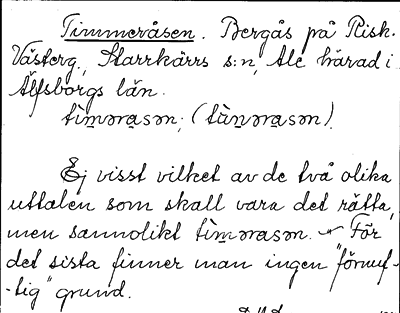 Timmeråsen. Bergås på Risk.
Västerg., Starrkärrs s:n, Ale härad i
Älfsborgs län.
tìm̱ərasən; (tùṉərasən).
Ej visst vilket av de två olika
uttalen som skall vara det rätta,
men sannolikt tìm̱ərasən. För
det sista finner man ingen "förnuf-
-tig" grund.